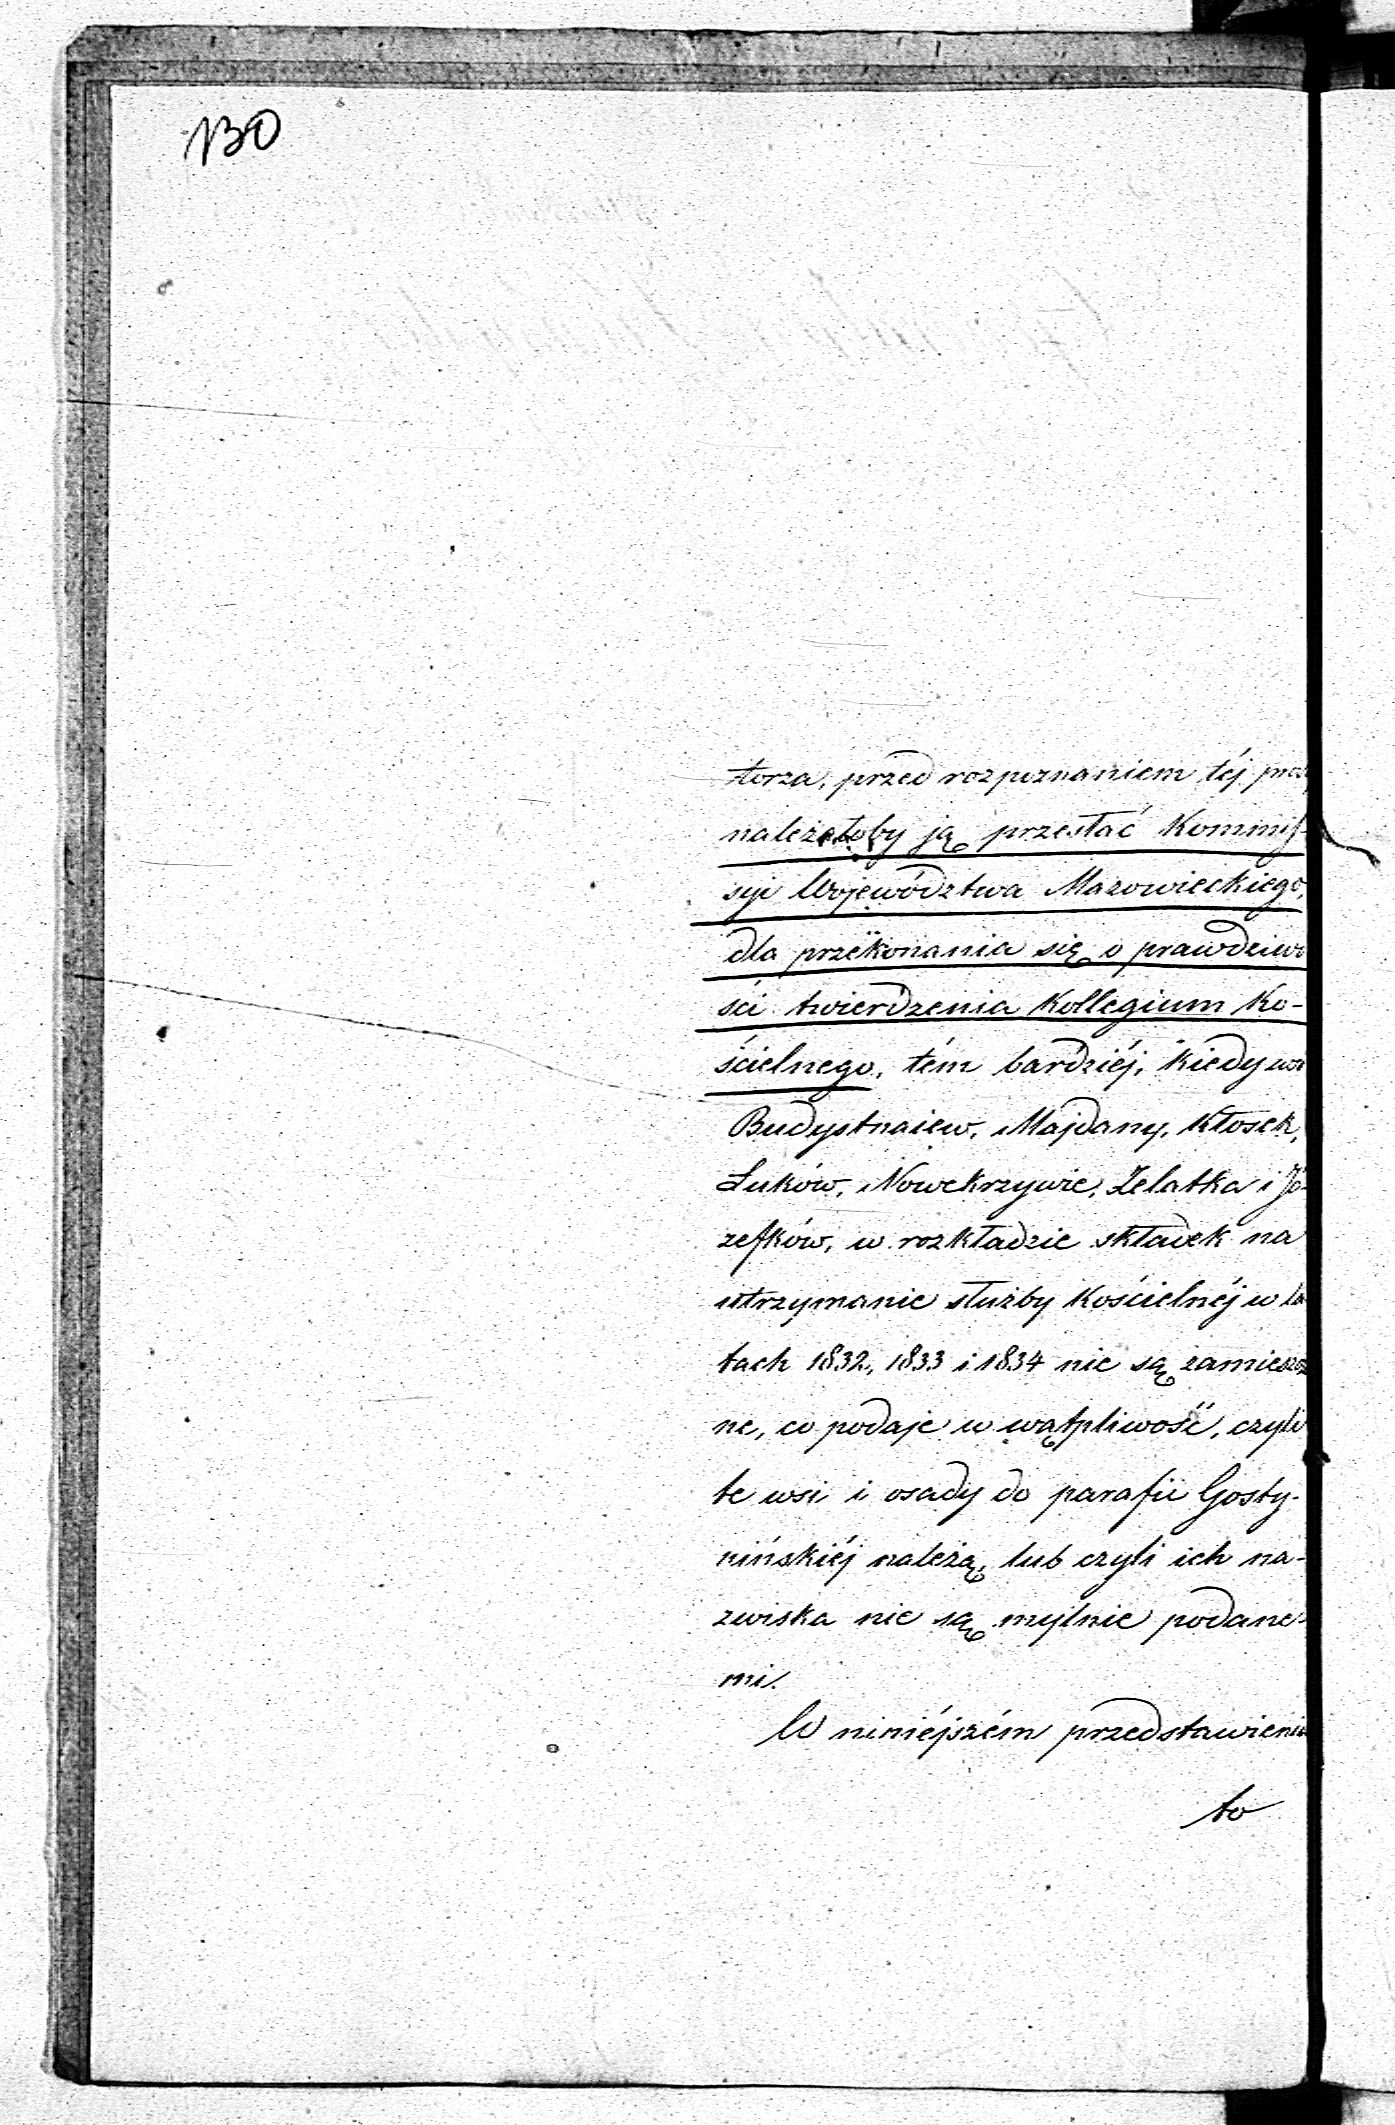 130
torza, przed rozpoznaniem téj
należałoby ją przesłać Kommis-
syi Województwa Mazowieckiego,
dla przekonania się o prawdziwo
ści twierdzenia Kollegium Ko-
ścielnego, tém bardziéj, kiedy wsi
Budystnaiew, Majdany, Kłosek,
Łuków, Nowekrzywie, Zelatka i Jó-
zefków, w rozkładzie składek na
utrzymanie służby Kościelnéj w la
tach 1832, 1833 i 1834 nie są zamieszczo
ne, co podaje w wątpliwość, czyli
te wsi i osady do parafii Gosty-
nińskiéj należą, lub czyli ich na-
zwiska nie są mylnie podane-
mi.
W niniéjszém przedstawieniu
to